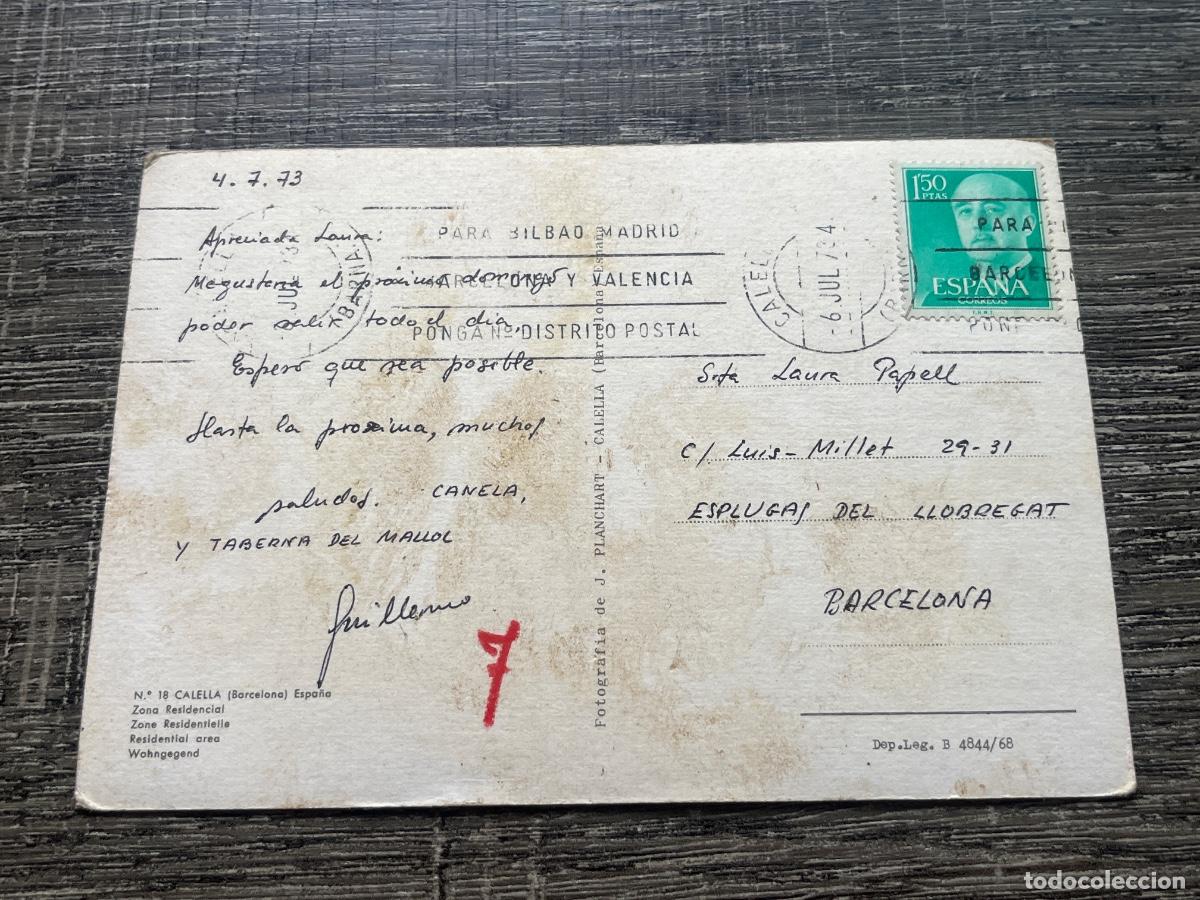 4.7.73
Apreciada Laura:
Me gustaria el próximo domingo
poder salir todo el dia,
Espero que sea posible.
Hasta la proxima, muchos
saludos. CANELA,
Y TABERNA DEL MALLOL
Guillermo
7
N.º 18 CALELLA (Barcelona) España
Zona Residencial
Zone Residentielle
Residential area
Wohngegend
PARA BILBAO MADRID
BARCELONA Y VALENCIA
PONGA Nº DISTRITO POSTAL
Fotografía de J. PLANCHART - CALELLA (Barcelona) España
CALELL
-6 JUL 73 4
1'50
PTAS
ESPAÑA
CORREOS
F.N.M.T.
PARA
BARCELON
PON
Srta Laura Papell
C/ Luis-Millet 29-31
ESPLUGAS DEL LLOBREGAT
BARCELONA
Dep.Leg. B 4844/68
todocoleccion